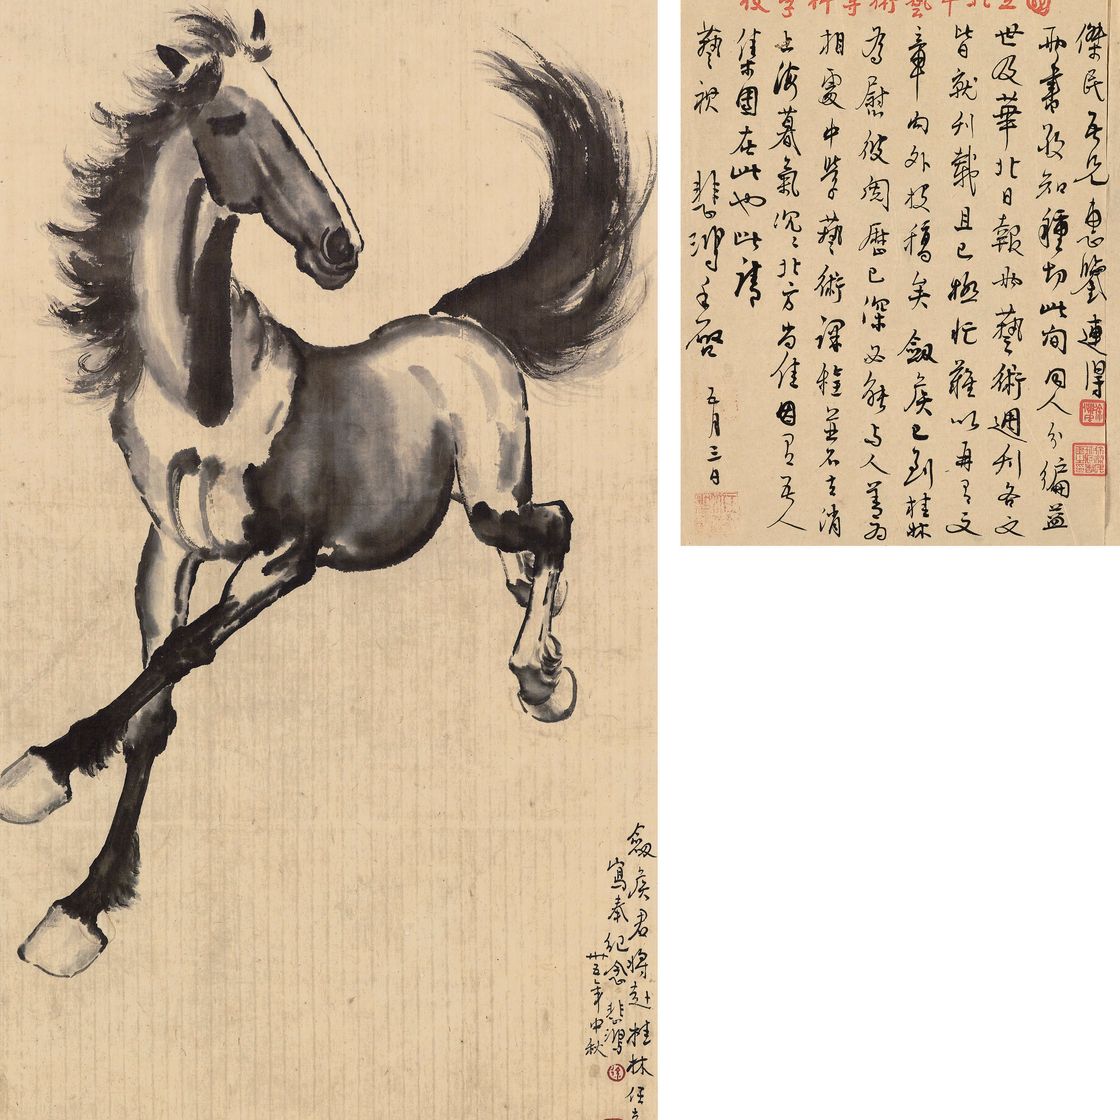 國立北平藝術專科學校
傑民吾兄惠鑒連得
兩書敬知種切此間同人分編益
世及華北日報兩藝術週刊各文
皆就刊載且已極忙難以再有文
章向外投稿矣劔侯已到桂林
為慰彼閱歷已深必能与人善為
相處中學藝術課程並不去消
上海暮氣沉沉北方尚佳因有吾人
集團在此也此請
藝祺 悲鴻手啓
五月三日
劔侯君將赴桂林任
寫奉紀念 悲鴻
卅五年中秋